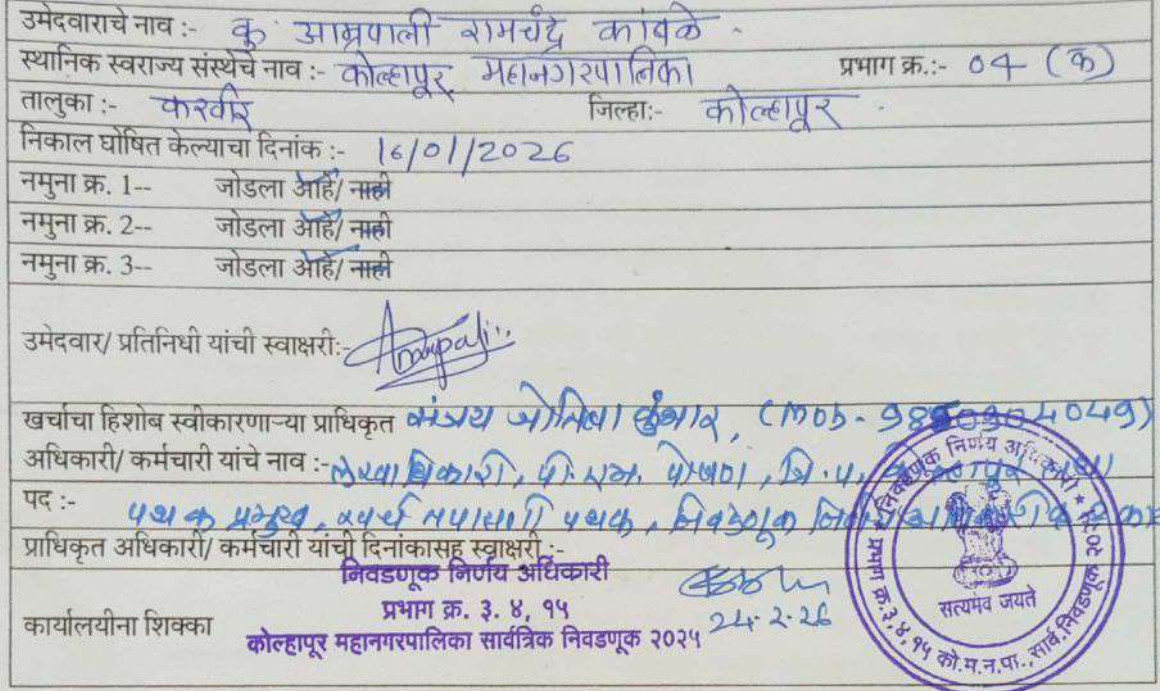 उमेदवाराचे नाव :- कु आम्रपाली रामचंद्र कांबळे -
स्थानिक स्वराज्य संस्थेचे नाव :- कोल्हापूर महानगरपालिका प्रभाग क्र.:- 04 (क)
तालुका :- करवीर जिल्हा:- कोल्हापूर .
निकाल घोषित केल्याचा दिनांक :- 16/01/2026
नमुना क्र. 1-- जोडला आहे/ नाही
नमुना क्र. 2-- जोडला आहे/ नाही
नमुना क्र. 3-- जोडला आहे/ नाही
उमेदवार/ प्रतिनिधी यांची स्वाक्षरी:- Amrapali
खर्चाचा हिशोब स्वीकारणाऱ्या प्राधिकृत संजय जोतिबा कुंभार, (mob-
अधिकारी/ कर्मचारी यांचे नाव :- लेखाधिकारी, पी.एम. पोषण, जि.प,
पद :- पथक प्रमुख, खर्च तपासणी पथक, निवडणूक
प्राधिकृत अधिकारी/ कर्मचारी यांची दिनांकासह स्वाक्षरी :-
निवडणूक निर्णय अधिकारी
प्रभाग क्र. ३. ४, १५
कोल्हापूर महानगरपालिका सार्वत्रिक निवडणूक २०२५
24.2.26
कार्यालयीना शिक्का
निवडणूक निर्णय अधिकारी
सत्यमेव जयते
प्रभाग क्र.३,४,१५ को.म.न.पा., सार्व.निवडणूक २०२५